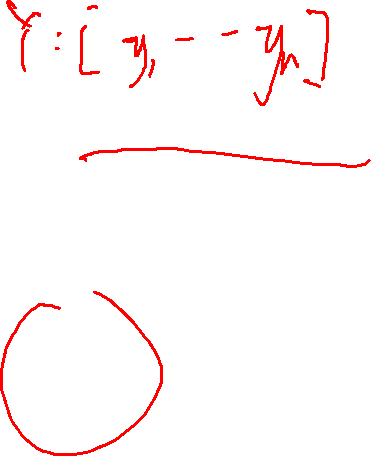 Y : [ y, - - yn ]